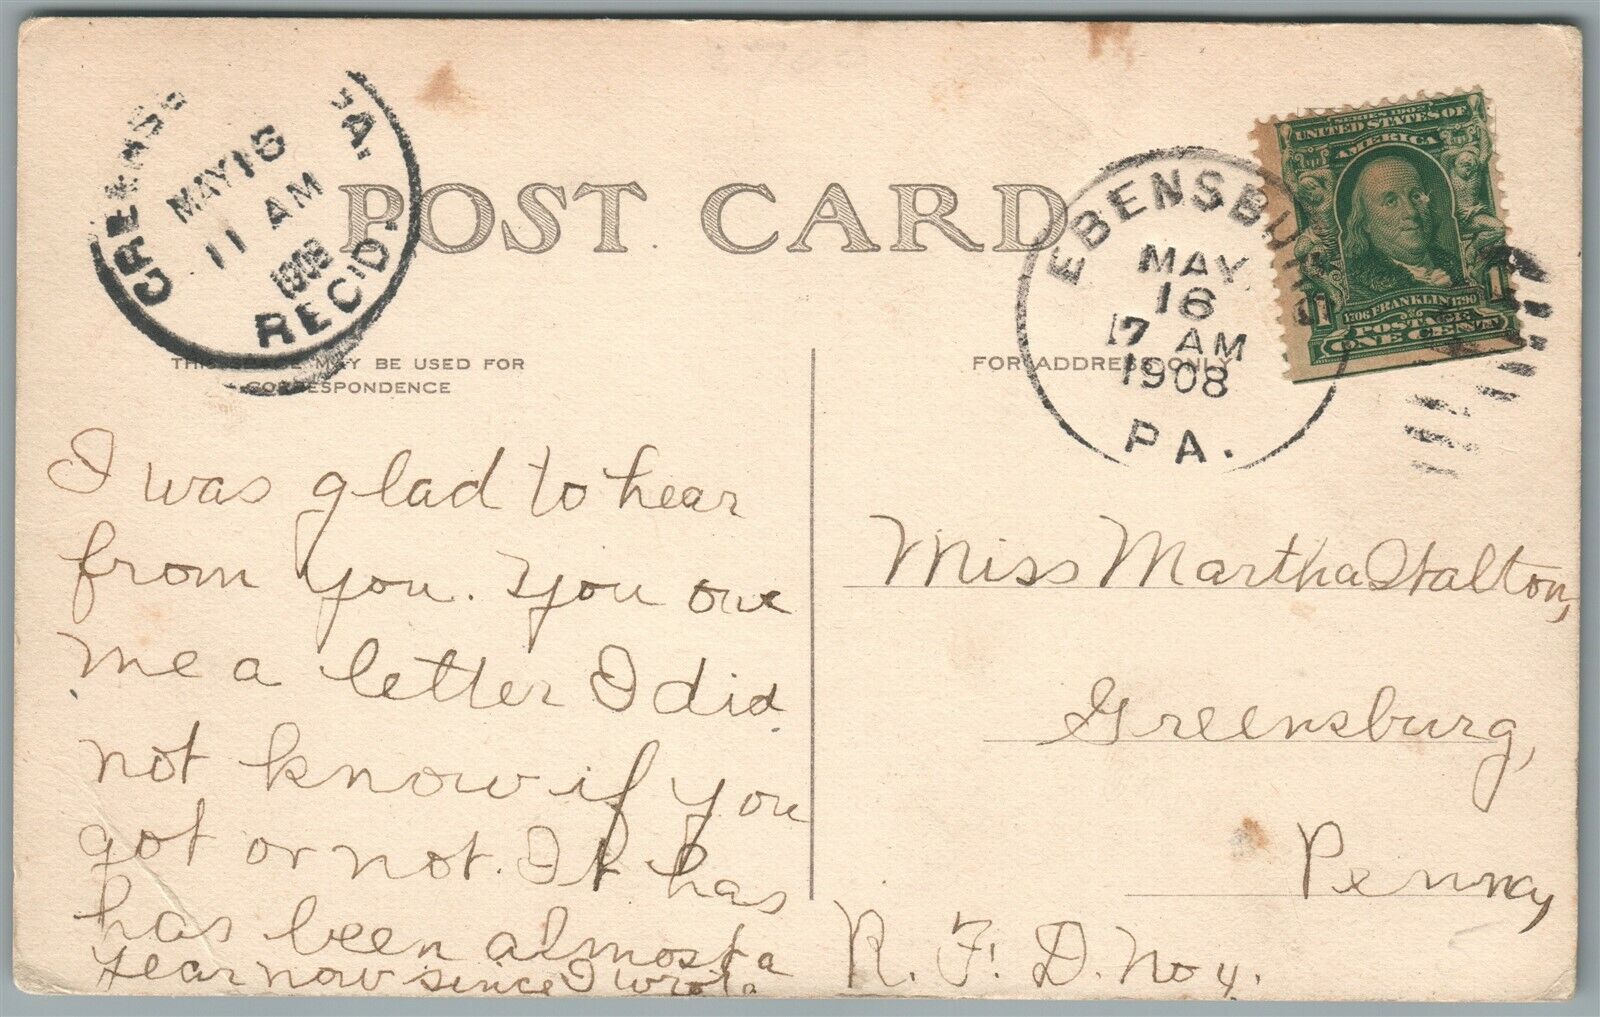 GREENSB PA.
MAY 16
11 AM
1908
REC'D.
POST CARD
THIS SPACE MAY BE USED FOR
CORRESPONDENCE
FOR ADDRESS ONLY
EBENSBURG
MAY
16
7 AM
1908
PA.
SERIES 1902
UNITED STATES OF
AMERICA
1706 FRANKLIN 1790
1 1
POSTAGE
ONE CENT
I was glad to hear
from you. You owe
me a letter I did
not know if you
got or not. It has
has been almost a
year now since I wrote
Miss Martha Stalton,
Greensburg,
Penna,
R. F. D. No 4.